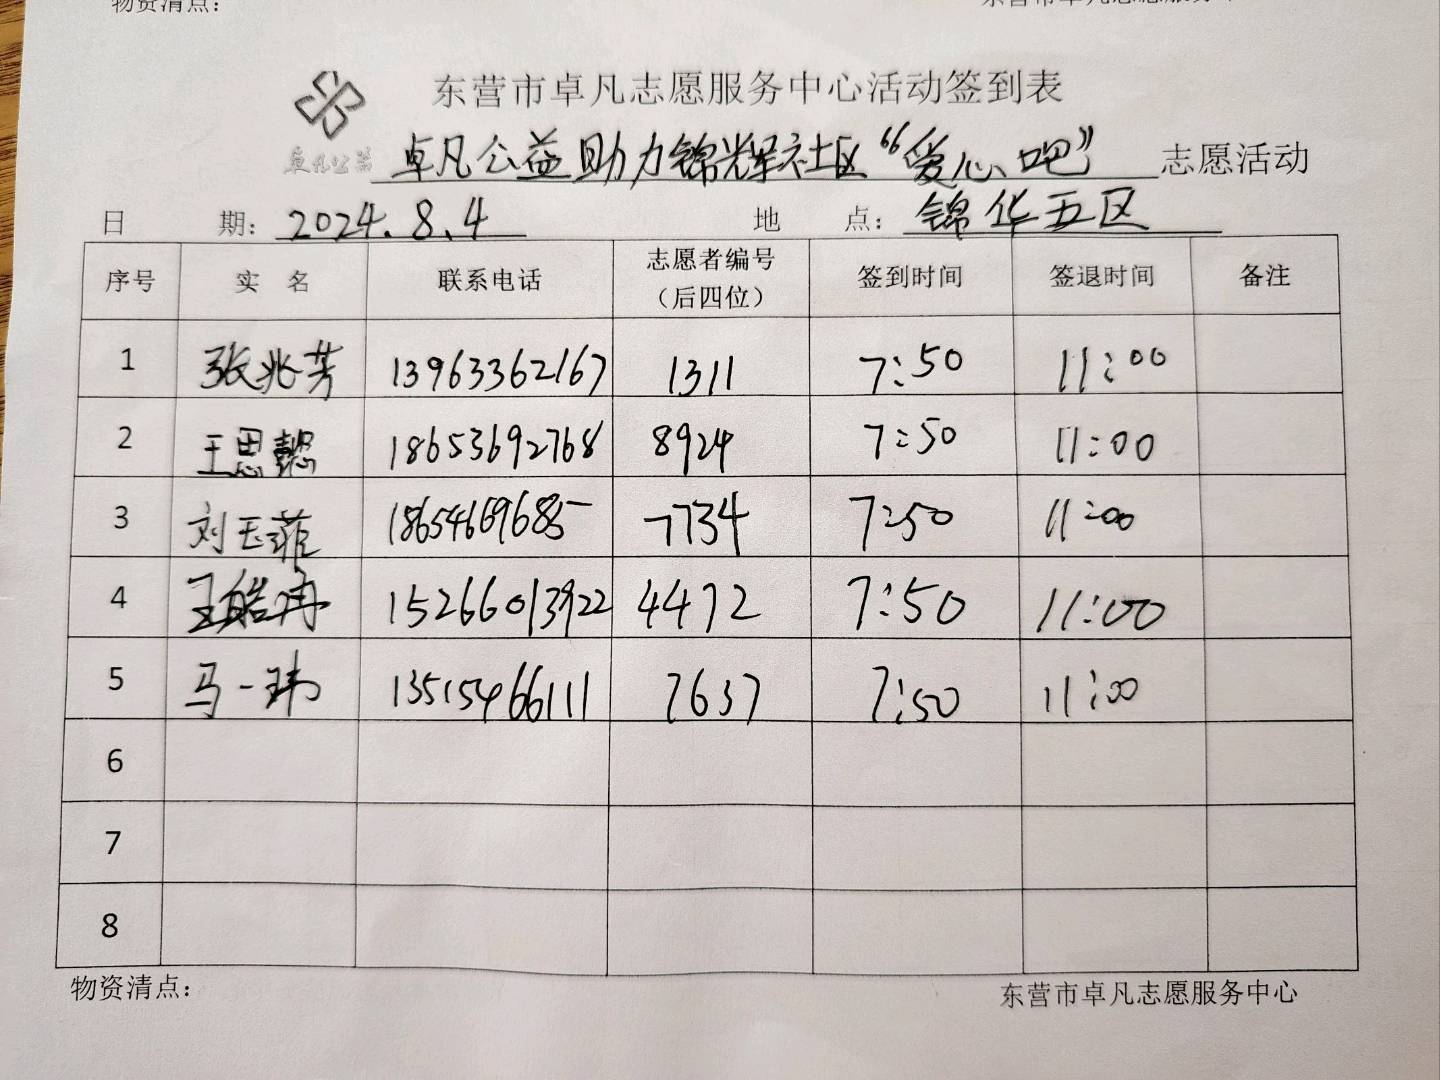 物资清点：
东营市卓凡志愿服务中心
东营市卓凡志愿服务中心活动签到表
卓凡公益
卓凡公益助力锦辉社区“爱心吧” 志愿活动
日 期：2024.8.4 地 点：锦华五区
序号 实 名 联系电话 志愿者编号（后四位） 签到时间 签退时间 备注
1 张兆芳 13963362167 1311 7:50 11:00
2 王思懿 18653692768 8924 7:50 11:00
3 刘玉菲 18654669685 7734 7:50 11:00
4 王皓冉 15266013922 4472 7:50 11:00
5 马一玮 13515466111 7637 7:50 11:00
6
7
8
物资清点：
东营市卓凡志愿服务中心